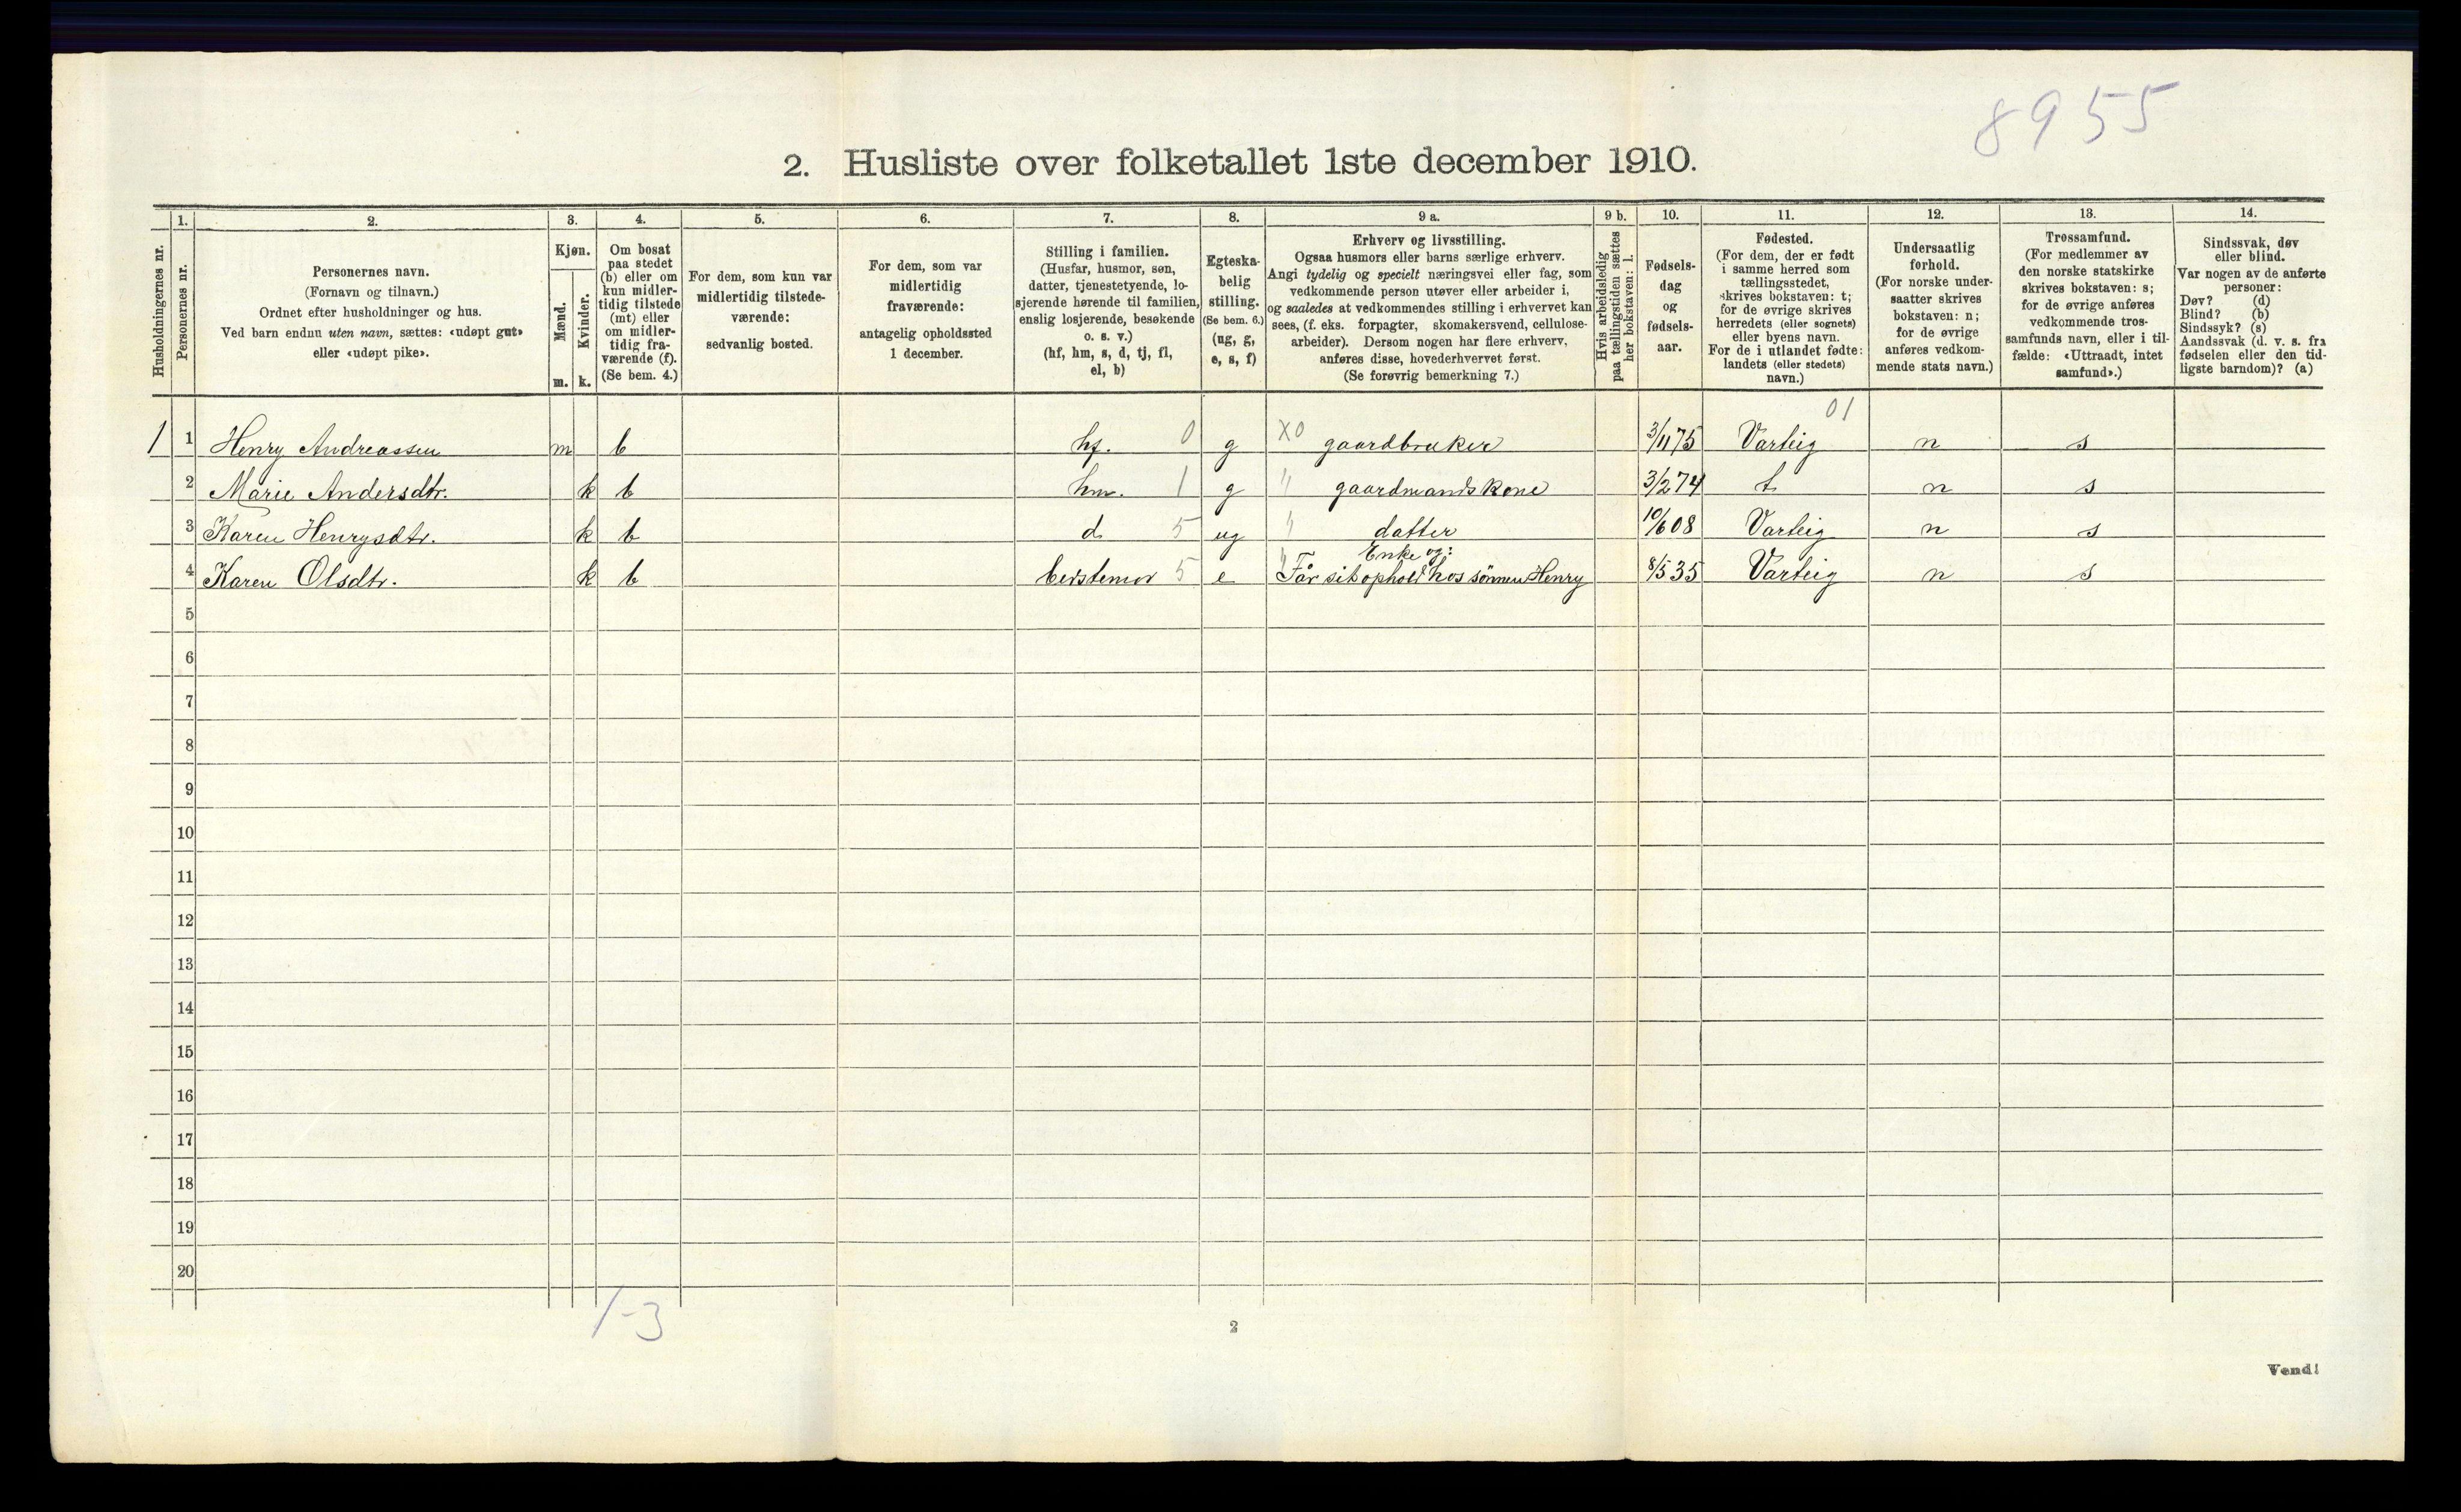 8955
2. Husliste over folketallet 1ste december 1910.
1. 2. 3. 4. 5. 6. 7. 8. 9 a. 9 b. 10. 11. 12. 13. 14.
Husholdningernes nr.
Personernes nr.
Personernes navn.
(Fornavn og tilnavn.)
Ordnet efter husholdninger og hus.
Ved barn endnu uten navn, sættes: «udøpt gut»
eller «udøpt pike».
Kjøn.
Mænd.
Kvinder.
m. k.
Om bosat
paa stedet
(b) eller om
kun midler-
tidig tilstede
(mt) eller
om midler-
tidig fra-
værende (f).
(Se bem. 4.)
For dem, som kun var
midlertidig tilstede-
værende:
sedvanlig bosted.
For dem, som var
midlertidig
fraværende:
antagelig opholdssted
1 december.
Stilling i familien.
(Husfar, husmor, søn,
datter, tjenestetyende, lo-
sjerende hørende til familien,
enslig losjerende, besøkende
o. s. v.)
(hf, hm, s, d, tj, fl,
el, b)
Egteska-
belig
stilling.
(Se bem. 6.)
(ug, g,
e, s, f)
Erhverv og livsstilling.
Ogsaa husmors eller barns særlige erhverv.
Angi tydelig og specielt næringsvei eller fag, som
vedkommende person utøver eller arbeider i,
og saaledes at vedkommendes stilling i erhvervet kan
sees, (f. eks. forpagter, skomakersvend, cellulose-
arbeider). Dersom nogen har flere erhverv,
anføres disse, hovederhvervet først.
(Se forøvrig bemerkning 7.)
Hvis arbeidsledig
paa tællingstiden sættes
her bokstaven: l.
Fødsels-
dag
og
fødsels-
aar.
Fødested.
(For dem, der er født
i samme herred som
tællingsstedet,
skrives bokstaven: t;
for de øvrige skrives
herredets (eller sognets)
eller byens navn.
For de i utlandet fødte:
landets (eller stedets)
navn.)
Undersaatlig
forhold.
(For norske under-
saatter skrives
bokstaven: n;
for de øvrige
anføres vedkom-
mende stats navn.)
Trossamfund.
(For medlemmer av
den norske statskirke
skrives bokstaven: s;
for de øvrige anføres
vedkommende tros-
samfunds navn, eller i til-
fælde: «Uttraadt, intet
samfund».)
Sindssvak, døv
eller blind.
Var nogen av de anførte
personer:
Døv? (d)
Blind? (b)
Sindssyk? (s)
Aandssvak (d. v. s. fra
fødselen eller den tid-
ligste barndom)? (a)
01
1 1 Henry Andreassen m b hf. 0 g X0 gaardbruker 3/11 75 Varteig n s
2 Marie Andersdtr. k b hm. 1 g " gaardmandskone 3/2 74 t n s
3 Karen Henrysdtr. k b d 5 ug " datter 10/6 08 Varteig n s
Enke og:
4 Karen Olsdtr. k b bedstemor 5 e " Får sit ophold hos sönnen Henry 8/5 35 Varteig n s
5
6
7
8
9
10
11
12
13
14
15
16
17
18
19
20
1-3
2
Vend!